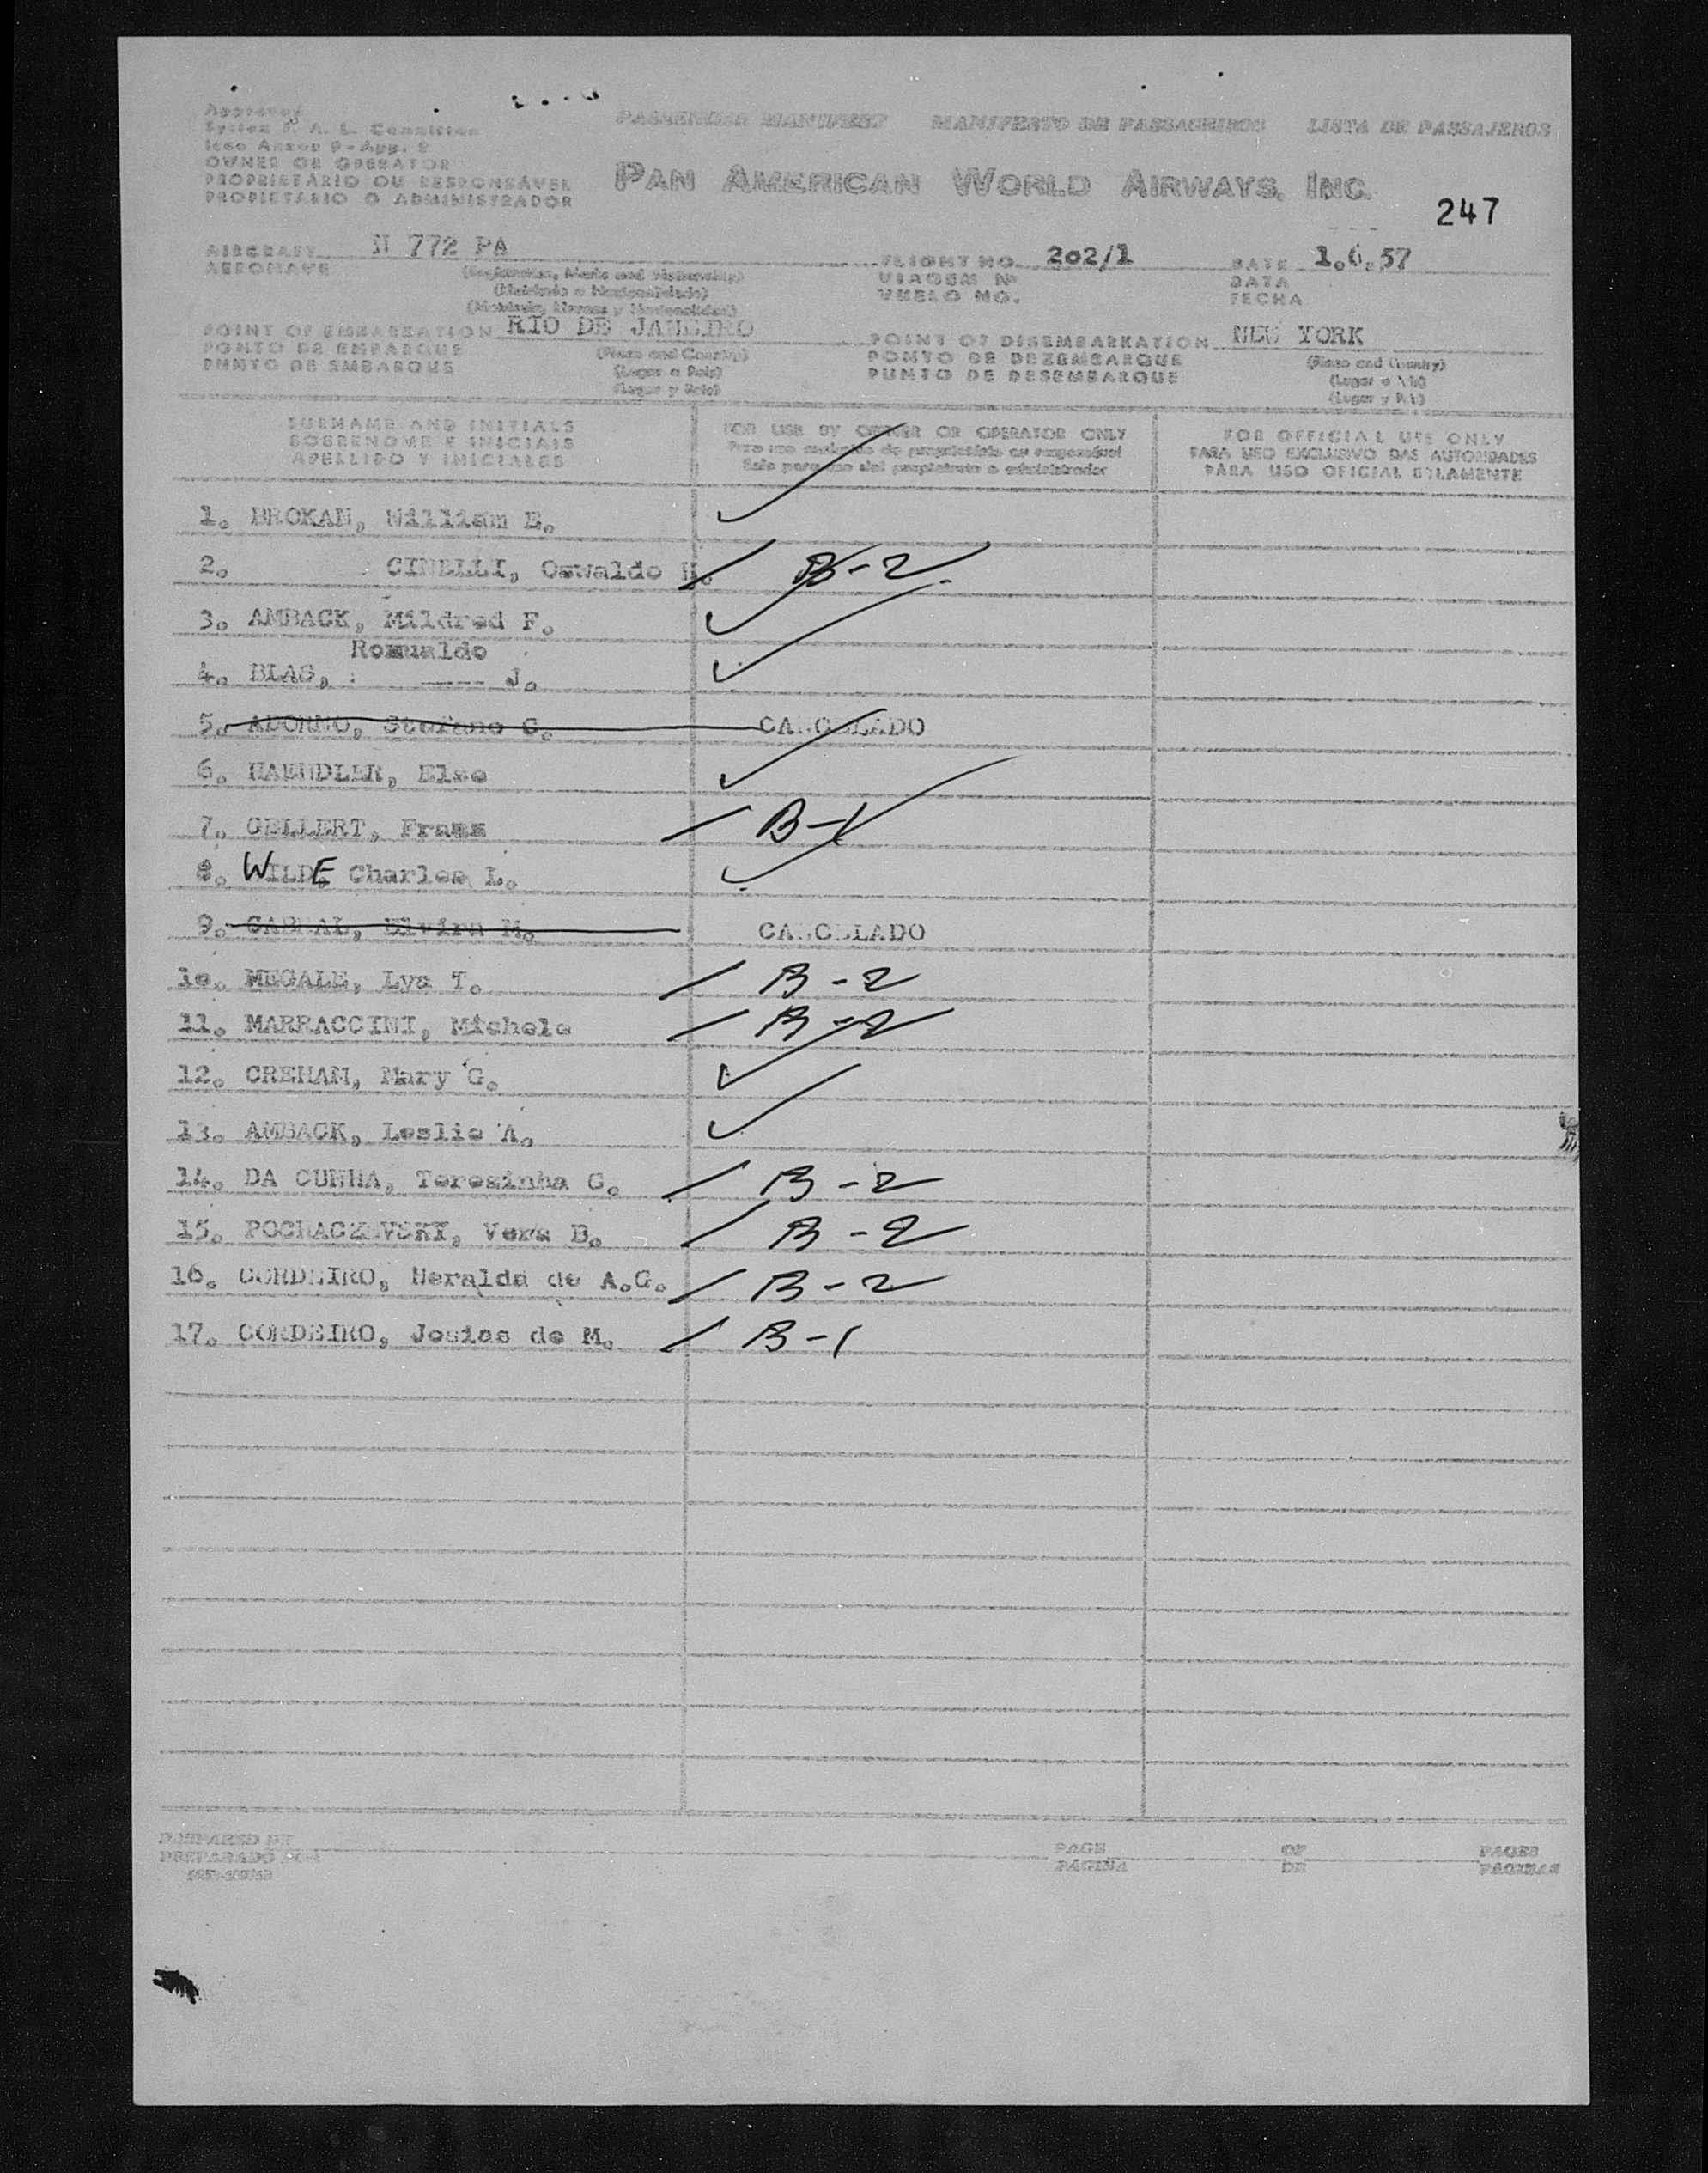 Approved
System F. A. L. Committee
Icao Annex 9-App. 2
PASSENGER MANIFEST MANIFESTO DE PASSAGEIROS LISTA DE PASSAJEROS
OWNER OR OPERATOR
PROPRIETÁRIO OU RESPONSÁVEL
PROPIETARIO O ADMINISTRADOR
PAN AMERICAN WORLD AIRWAYS, INC.
247
AIRCRAFT N 772 PA FLIGHT NO. 202/1 DATE 1.6.57
AERONAVE VIAGEM Nº DATA
(Registration, Marks and Nationality) VUELO NO. FECHA
(Matrícula e Nacionalidade)
(Matrícula, Marcas y Nacionalidad)
POINT OF EMBARKATION RIO DE JANEIRO POINT OF DISEMBARKATION NEW YORK
PONTO DE EMBARQUE (Place and Country) PONTO DE DEZEMBARQUE (Place and Country)
PUNTO DE EMBARQUE (Lugar e País) PUNTO DE DESEMBARQUE (Lugar e País)
(Lugar y País) (Lugar y País)
SURNAME AND INITIALS FOR USE BY OWNER OR OPERATOR ONLY FOR OFFICIAL USE ONLY
SOBRENOME E INICIAIS Para uso exclusivo do proprietário ou responsável PARA USO EXCLUSIVO DAS AUTORIDADES
APELLIDO Y INICIALES Solo para uso del propietario o administrador PARA USO OFICIAL SOLAMENTE
1. BROKAN, William E.
2. CINELLI, Oswaldo H. B-2
3. AMBACK, Mildred F.
Romualdo
4. BLAS, J.
5. ADORNO, Stefano G. CANCELADO
6. HAENDLER, Else
7. GELLERT, Franz B-1
8. WILDE Charles L.
9. CABRAL, Elvira M. CANCELADO
10. MEGALE, Lya T. B-2
11. MARRACCINI, Michele B-2
12. CREHAN, Mary G.
13. AMBACK, Leslie A.
14. DA CUNHA, Teresinha G. B-2
15. POCHACZEVSKI, Vera B. B-2
16. CORDEIRO, Heralda de A.G. B-2
17. CORDEIRO, Josias de M. B-1
PREPARED BY PAGE OF PAGES
PREPARADO POR PÁGINA DE PÁGINAS